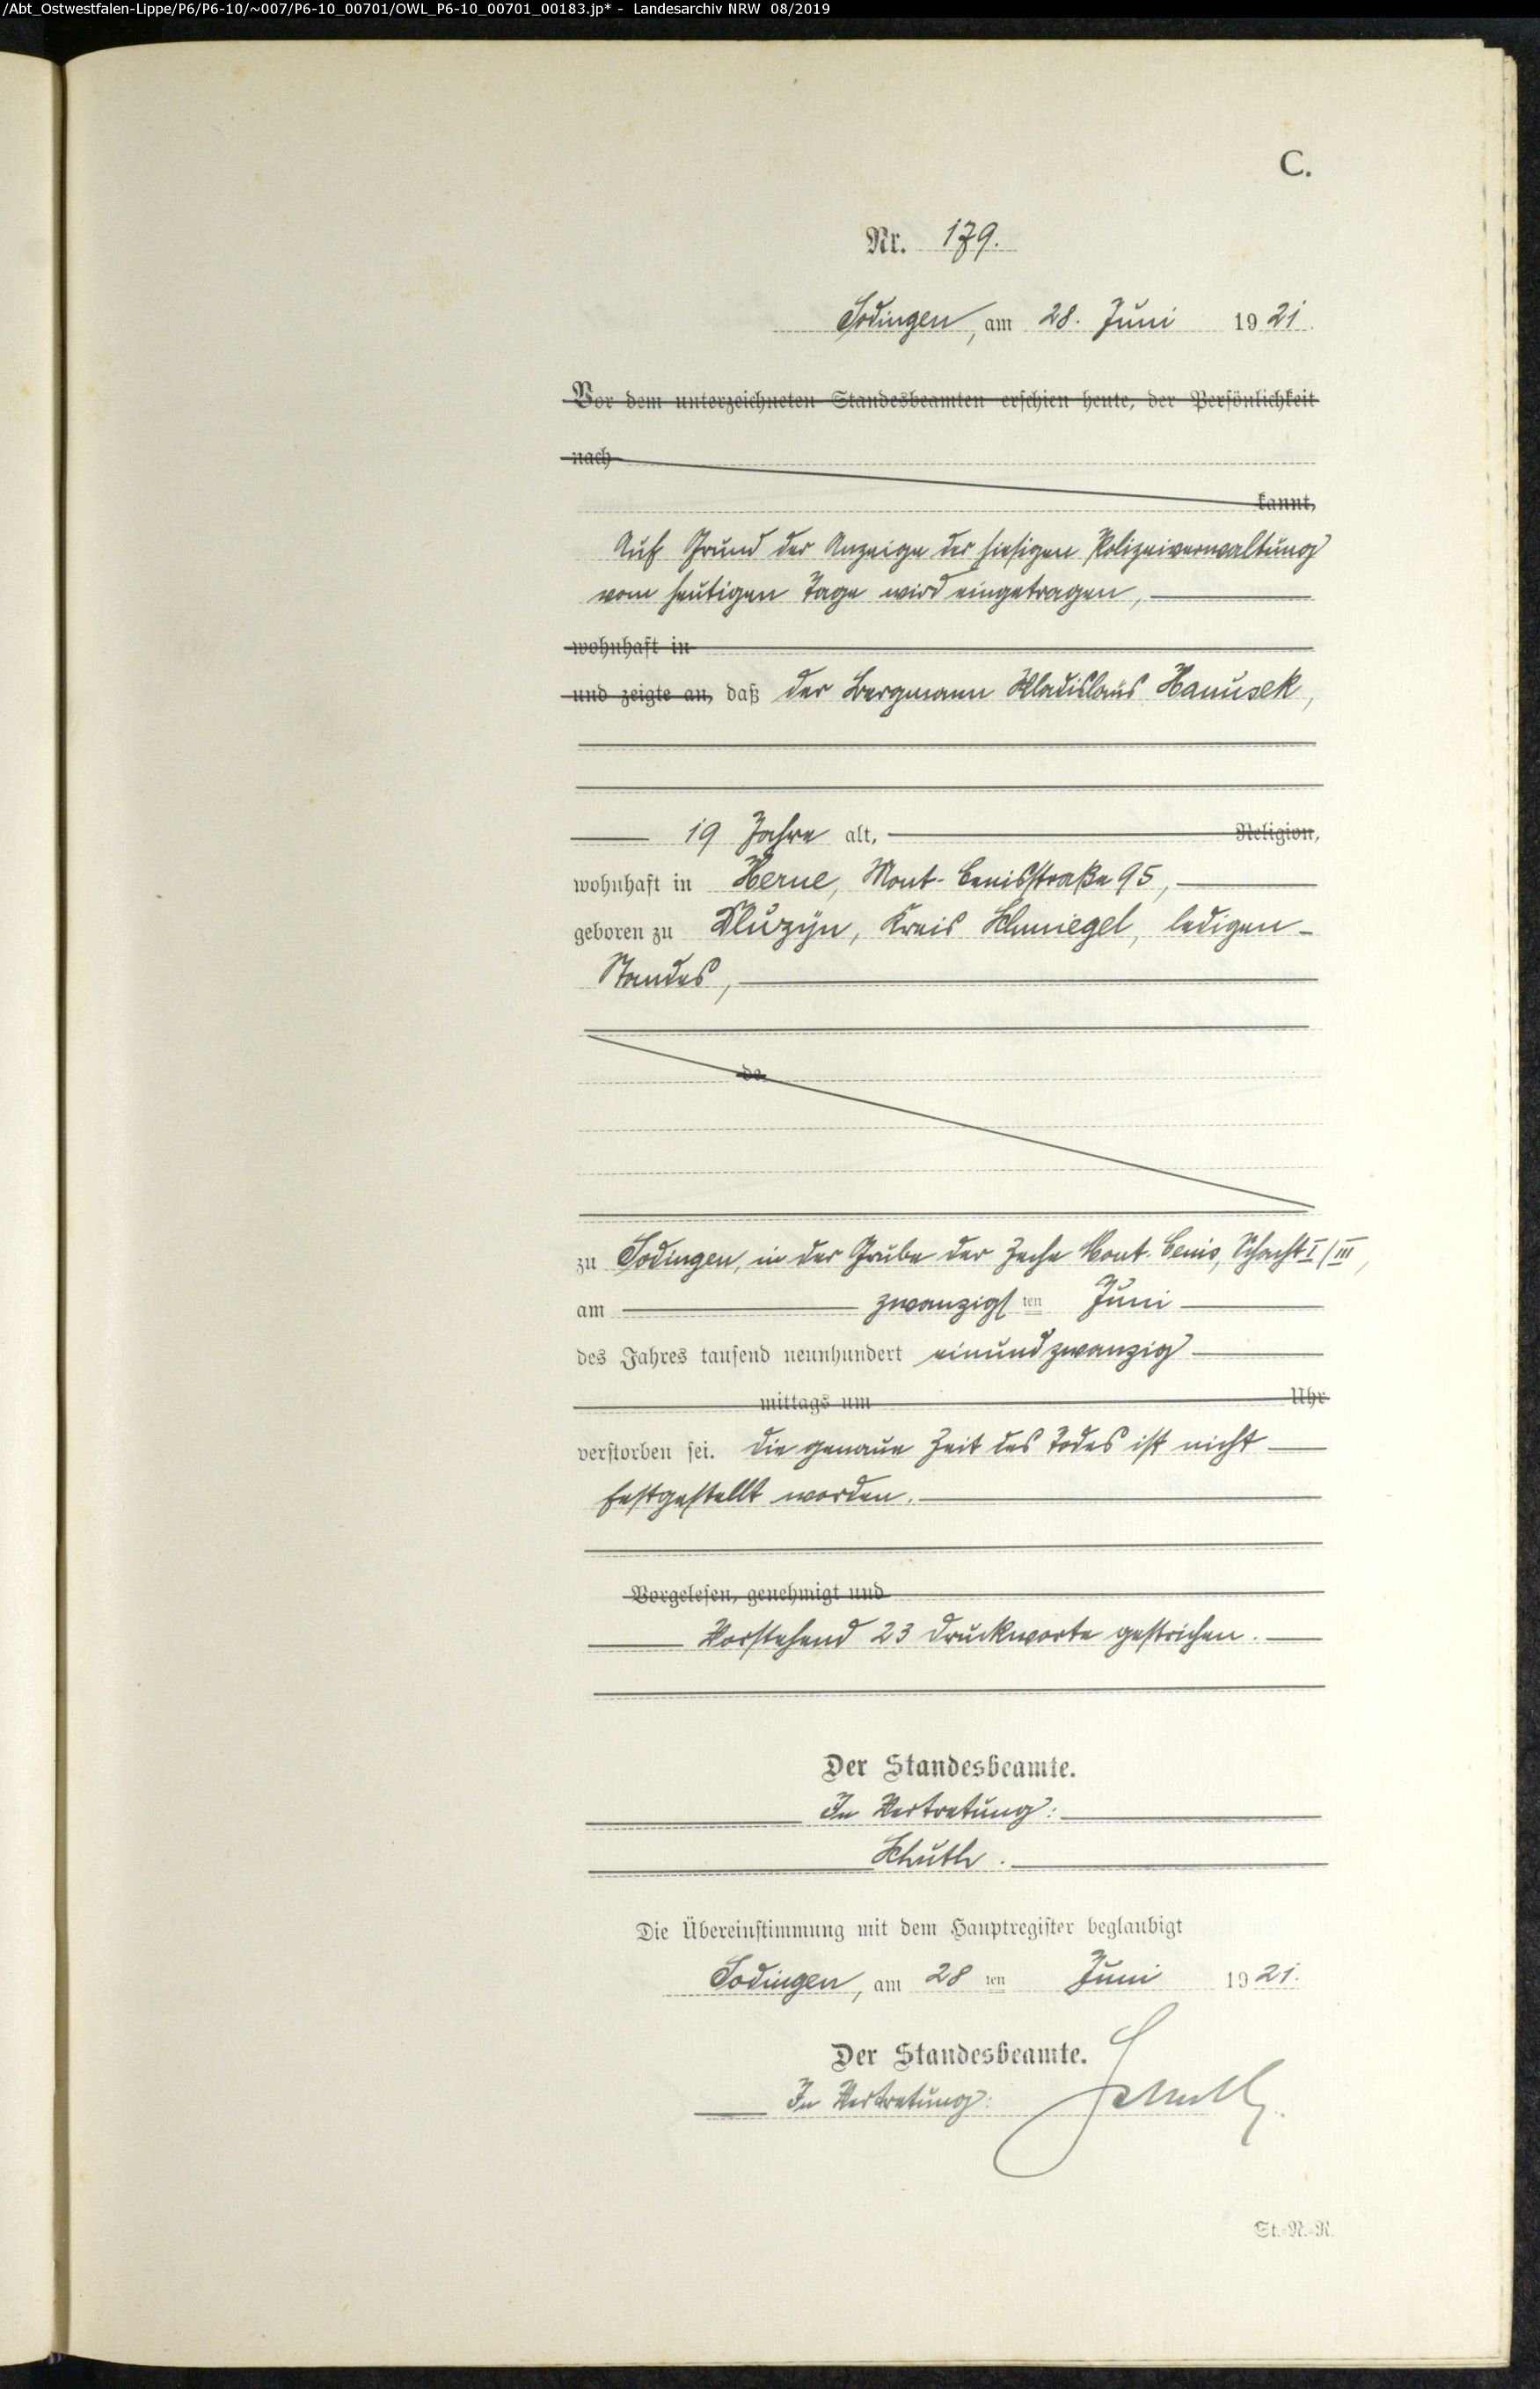 /Abt_Ostwestfalen-Lippe/P6/P6-10/~007/P6-10_00701/OWL_P6-10_00701_00183.jp* - Landesarchiv NRW 08/2019
C.
Nr. 179.
Sodingen, am 28. Juni 1921.
Vor dem unterzeichneten Standesbeamten erschien heute, der Persönlichkeit
nach
kannt,
Auf Grund der Anzeige der hiesigen Polizeiverwaltung
vom heutigen Tage wird eingetragen,
wohnhaft in
und zeigte an, daß der Bergmann Wladislaus Hanusek,
19 Jahre alt, Religion,
wohnhaft in Herne, Mont-Cenisstraße 95,
geboren zu Kluzyn, Kreis Schmiegel, ledigen-
Standes,
de
zu Sodingen, in der Grube der Zeche Mont-Cenis, Schacht I/III,
am zwanzigsten Juni
des Jahres tausend neunhundert einundzwanzig
mittags um Uhr
verstorben sei. Die genaue Zeit des Todes ist nicht
festgestellt worden.
Vorgelesen, genehmigt und
Vorstehend 23 Druckworte gestrichen.
Der Standesbeamte.
In Vertretung:
Schuth.
Die Übereinstimmung mit dem Hauptregister beglaubigt
Sodingen, am 28 ten Juni 1921.
Der Standesbeamte.
In Vertretung: Schuth.
St.-N.-R.